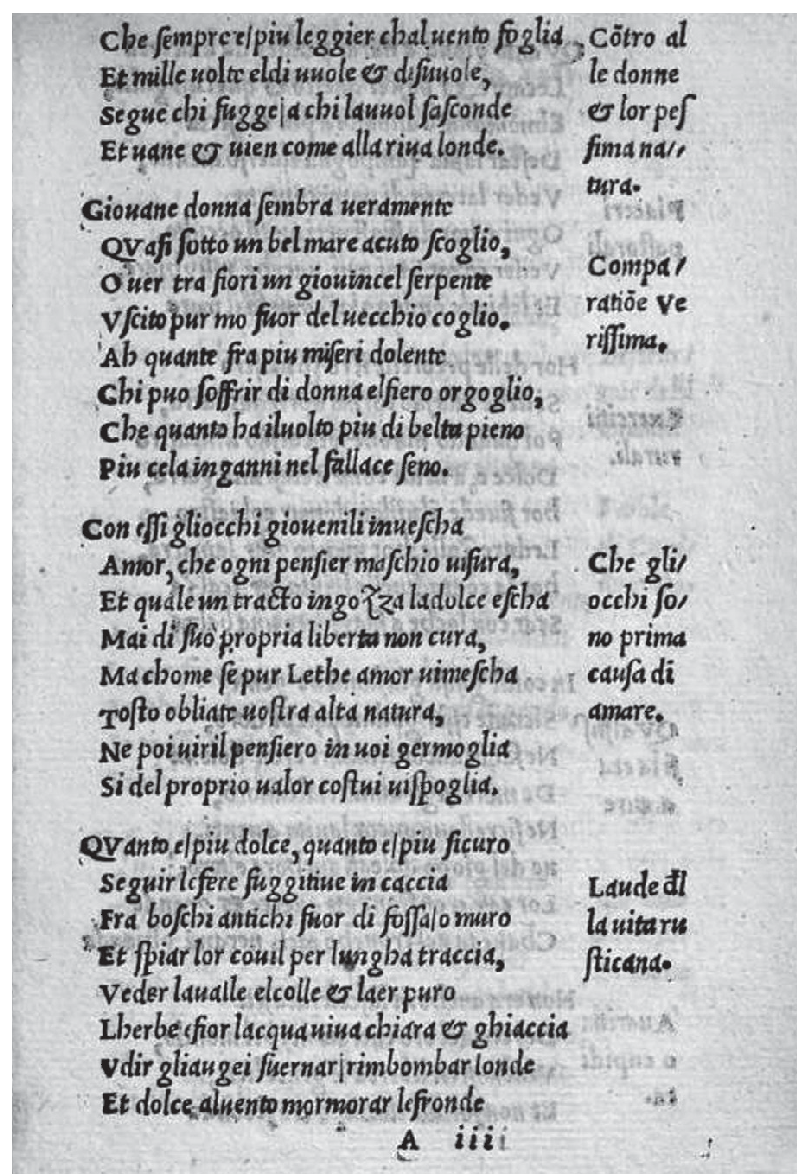 Che ſempre e|piu leggier chal uento foglia
Et mille uolte eldi uuole & diſuuole,
Segue chi fugge|a chi lauuol ſaſconde
Et uane & uien come alla riua londe.
Cōtro al
le donne
& lor peſ
ſima na//
tura.
Giouane donna ſembra ueramente
QVaſi ſotto un bel mare acuto ſcoglio,
O uer tra fiori un giouincel ſerpente
Vſcito pur mo fuor del uecchio coglio.
Ah quante fra piu miſeri dolente
Chi puo ſoffrir di donna elfiero orgoglio,
Che quanto ha iluolto piu di belta pieno
Piu cela inganni nel fallace ſeno.
Compa/
ratiōe Ve
riſſima.
Con eſſi gliocchi giouenili inueſcha
Amor, che ogni penſier maſchio uifura,
Et quale un tracto ingozza ladolce eſcha
Mai di ſuo propria liberta non cura,
Ma chome ſe pur Lethe amor uimeſcha
Toſto obliate uoſtra alta natura,
Ne poi uiril penſiero in uoi germoglia
Si del proprio ualor coſtui uiſpoglia.
Che gli/
occhi ſo/
no prima
cauſa di
amare.
QVanto e|piu dolce, quanto e|piu ſicuro
Seguir leſere fuggitiue in caccia
Fra boſchi antichi fuor di foſſa|o muro
Et ſpiar lor couil per lungha traccia,
Veder laualle elcolle & laer puro
Lherbe efior lacqua uiua chiara & ghiaccia
Vdir gliaugei ſuernar|rimbombar londe
Et dolce aluento mormorar lefronde
Laude đl
la uita ru
ſticana.
A iiii